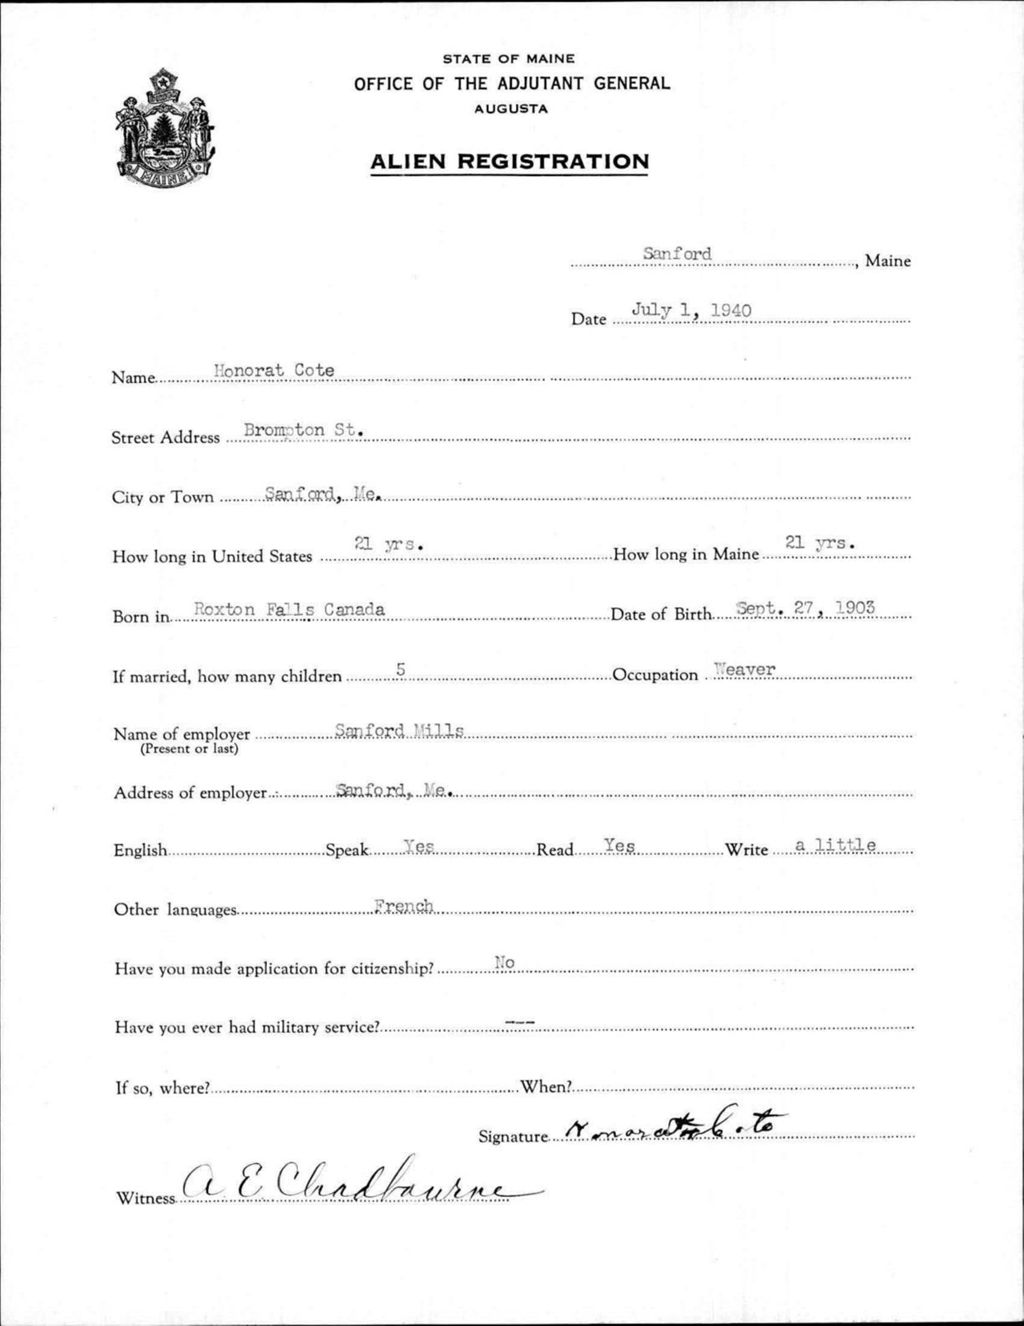 STATE OF MAINE
OFFICE OF THE ADJUTANT GENERAL
AUGUSTA
ALIEN REGISTRATION
MAINE
Sanford, Maine
Date July 1, 1940
Name Honorat Cote
Street Address Brompton St.
City or Town Sanford, Me.
How long in United States 21 yrs. How long in Maine 21 yrs.
Born in Roxton Falls Canada Date of Birth Sept. 27, 1903
If married, how many children 5 Occupation Weaver
Name of employer Sanford Mills
(Present or last)
Address of employer Sanford, Me.
English Speak Yes Read Yes Write a little
Other languages French
Have you made application for citizenship? No
Have you ever had military service? ---
If so, where? When?
Signature Honorat Cote
Witness A E Chadbourne